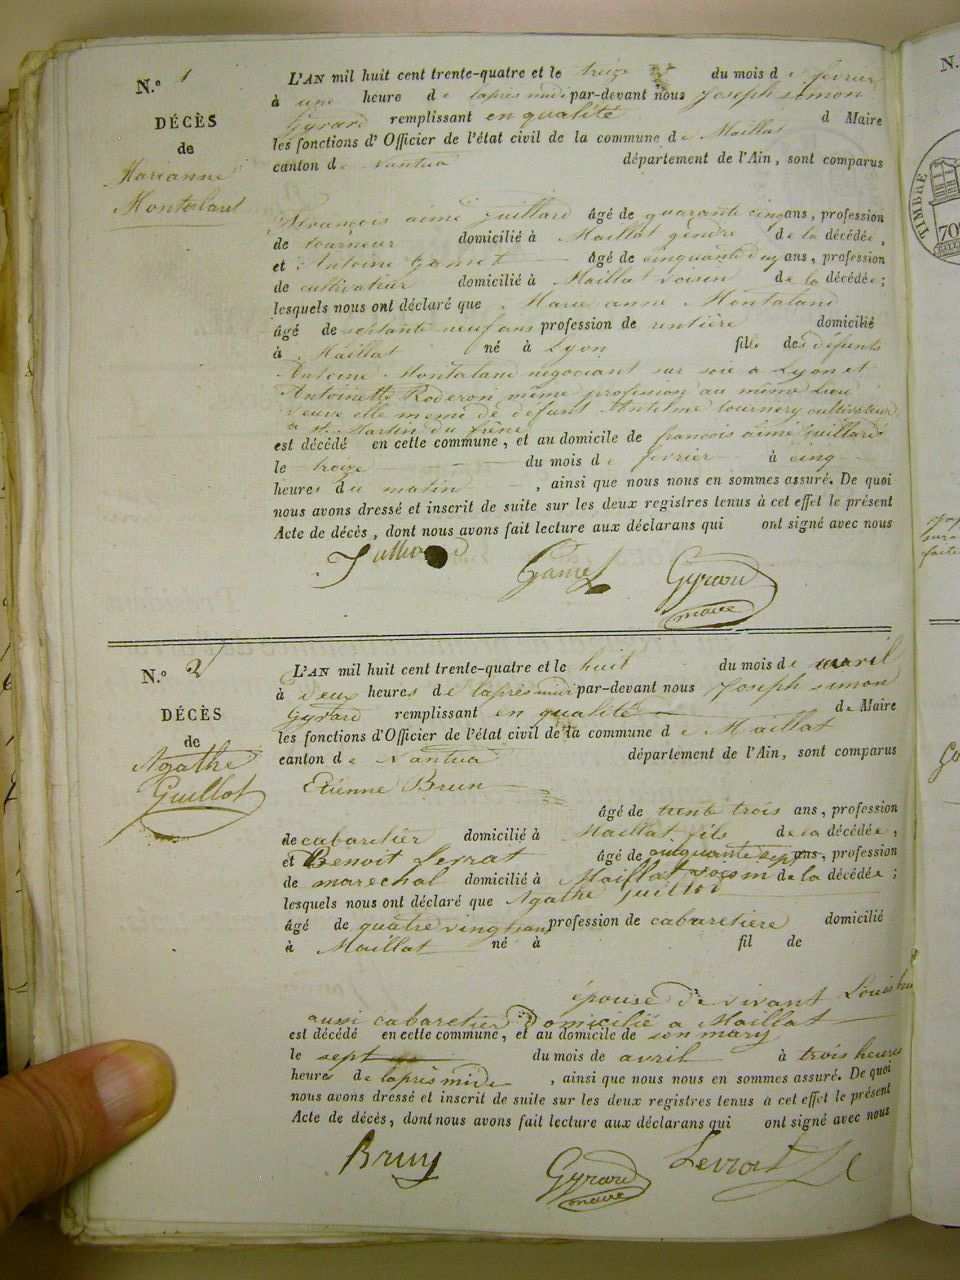 N.º 1
DÉCÈS
de
Marianne
Montaland
L'AN mil huit cent trente-quatre et le treize du mois de février
à une heure de laprès midi par-devant nous Joseph Simon
Gyrard remplissant en qualité d Maire
les fonctions d'Officier de l'état civil de la commune de Maillat
canton de Nantua département de l'Ain, sont comparus
François aimé Juillard âgé de quarante cinq ans, profession
de tourneur domicilié à Maillat gendre de la décédée,
et Antoine Gamet âgé de cinquante ans, profession
de cultivateur domicilié à Maillat voisin de la décédée;
lesquels nous ont déclaré que Marie anne Montaland
âgé de septante neuf ans profession de rentière domicilié
à Maillat né à Lyon fille des défunts
Antoine Montaland négociant sur soie à Lyon et
Antoinette Roderon même profession au même lieu
veuve elle meme de défunt Antelme tournery cultivateur
a St. Martin du frêne
est décédé en cette commune, et au domicile de françois aimé Juillard
le treize du mois de fevrier à cinq
heures du matin, ainsi que nous nous en sommes assuré. De quoi
nous avons dressé et inscrit de suite sur les deux registres tenus à cet effet le présent
Acte de décès, dont nous avons fait lecture aux déclarans qui ont signé avec nous
Juillard Gamet Gyrard
maire
N.º 2
DÉCÈS
de
Agathe
Guillot
L'AN mil huit cent trente-quatre et le huit du mois de avril
à deux heures de laprès midi par-devant nous Joseph Simon
Gyrard remplissant en qualité de Maire
les fonctions d'Officier de l'état civil de la commune de Maillat
canton de Nantua département de l'Ain, sont comparus
Etienne Brun
âgé de trente trois ans, profession
de cabaretier domicilié à Maillat fils de la décédée,
et Benoit Serrat âgé de cinquante sept ans, profession
de marechal domicilié à Maillat voisin de la décédée;
lesquels nous ont déclaré que Agathe Juillot
âgé de quatre vingt ans profession de cabaretiere domicilié
à Maillat né à fil de
épouse de vivant Louis
aussi cabaretier domicilié a Maillat
est décédé en cette commune, et au domicile de son mary
le sept du mois de avril à trois heures
heure de laprès midi, ainsi que nous nous en sommes assuré. De quoi
nous avons dressé et inscrit de suite sur les deux registres tenus à cet effet le présent
Acte de décès, dont nous avons fait lecture aux déclarans qui ont signé avec nous
Brun Gyrard Serrat
maire
N.
TIMBRE
70